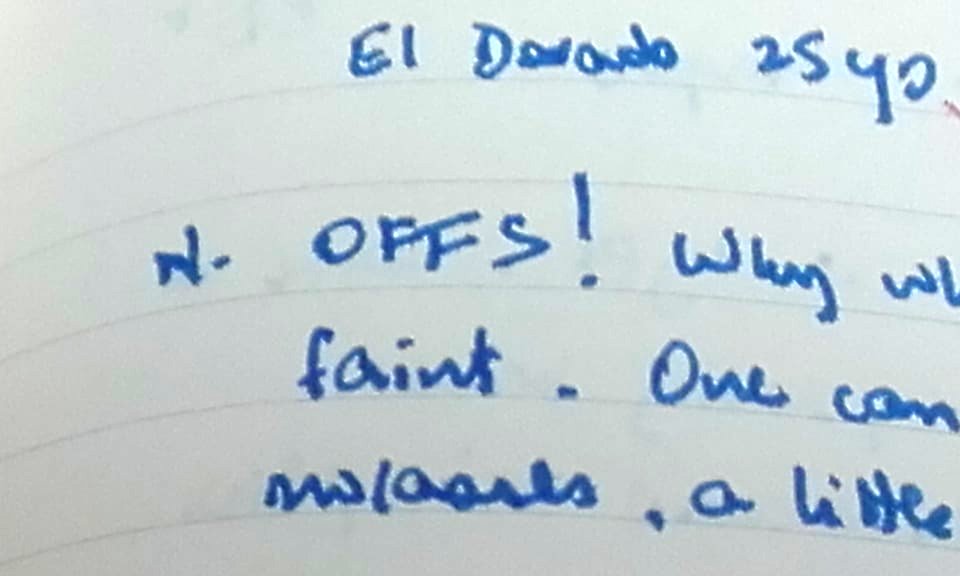 El Dorado 25 yo
N. OFFS! Why wh
faint. One can
molasses, a little